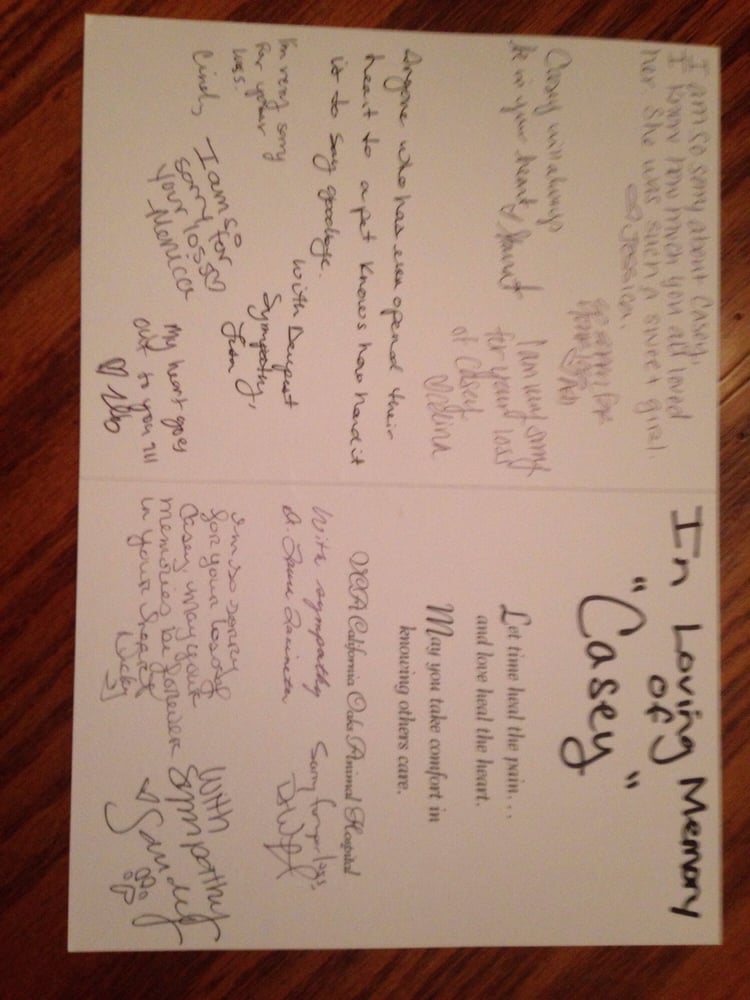 I am so sorry about Casey,
I know how much you all loved
her she was such a sweet girl.
Jessica.
Casey will always
be in your heart
I am very sorry
for your loss
of Casey
Anyone who has ever opend their
heart to a pet knows how hard it
is to say goodbye.
With Deepest
Sympathy,
I'm very sorry
for your
loss.
Cindy
I am so
sorry for
your loss ♡
Monica
My heart goes
out to you all
♡
In Loving Memory
of
"Casey"
Let time heal the pain...
and love heal the heart.
May you take comfort in
knowing others care.
VCA California Oaks Animal Hospital
With sympathy
Dr.
Sorry for your loss,
I'm so sorry
for your loss of
Casey, may your
memories be forever
in your hearts
Nicky
With
Sympathy
Sandy